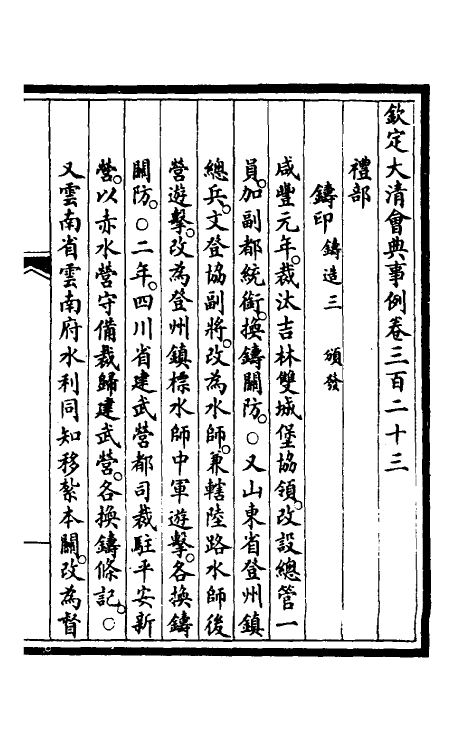 欽定大清會典事例卷三百二十三
禮部
鑄印 鑄造三 頒發
咸豐元年。裁汰吉林雙城堡協領。改設總管一
員。加副都統銜。換鑄關防。○又山東省登州鎮
總兵。文登協副將。改為水師。兼轄陸路水師後
營遊擊。改為登州鎮標水師中軍遊擊。各換鑄
關防。○二年。四川省建武營都司裁駐平安新
營。以赤水營守備裁歸建武營。各換鑄條記。○
又雲南省雲南府水利同知移紮本關。改為督